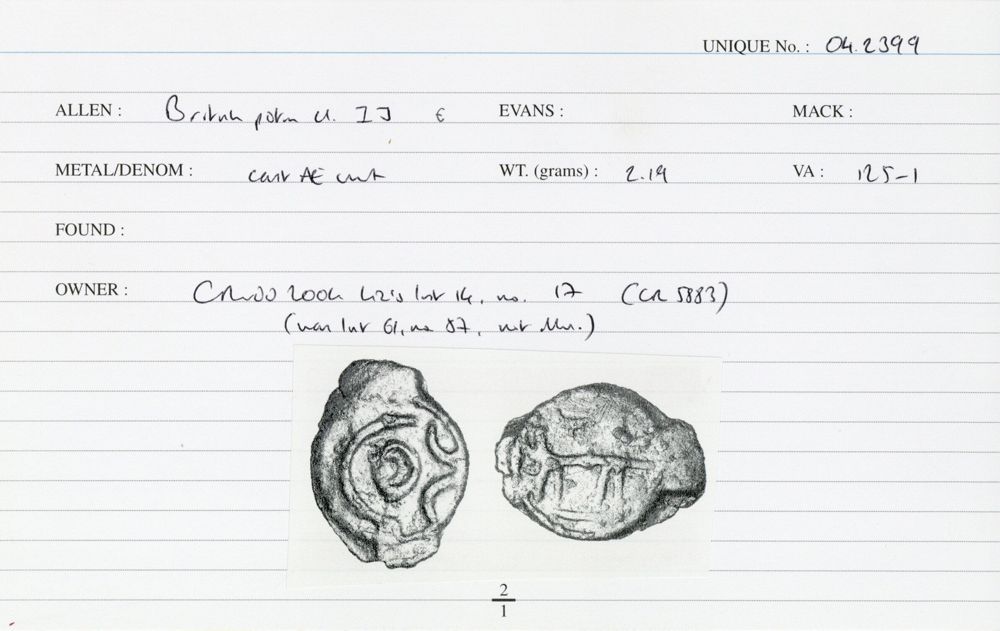 UNIQUE No. : 04.2399
ALLEN : British potin cl. II € EVANS : MACK :
METAL/DENOM : cast AE unit WT. (grams) : 2.19 VA : 125-1
FOUND :
OWNER : 2004 list 14, no. 17 (CR 5883)
(list 61, no 87, not illus.)
2
1